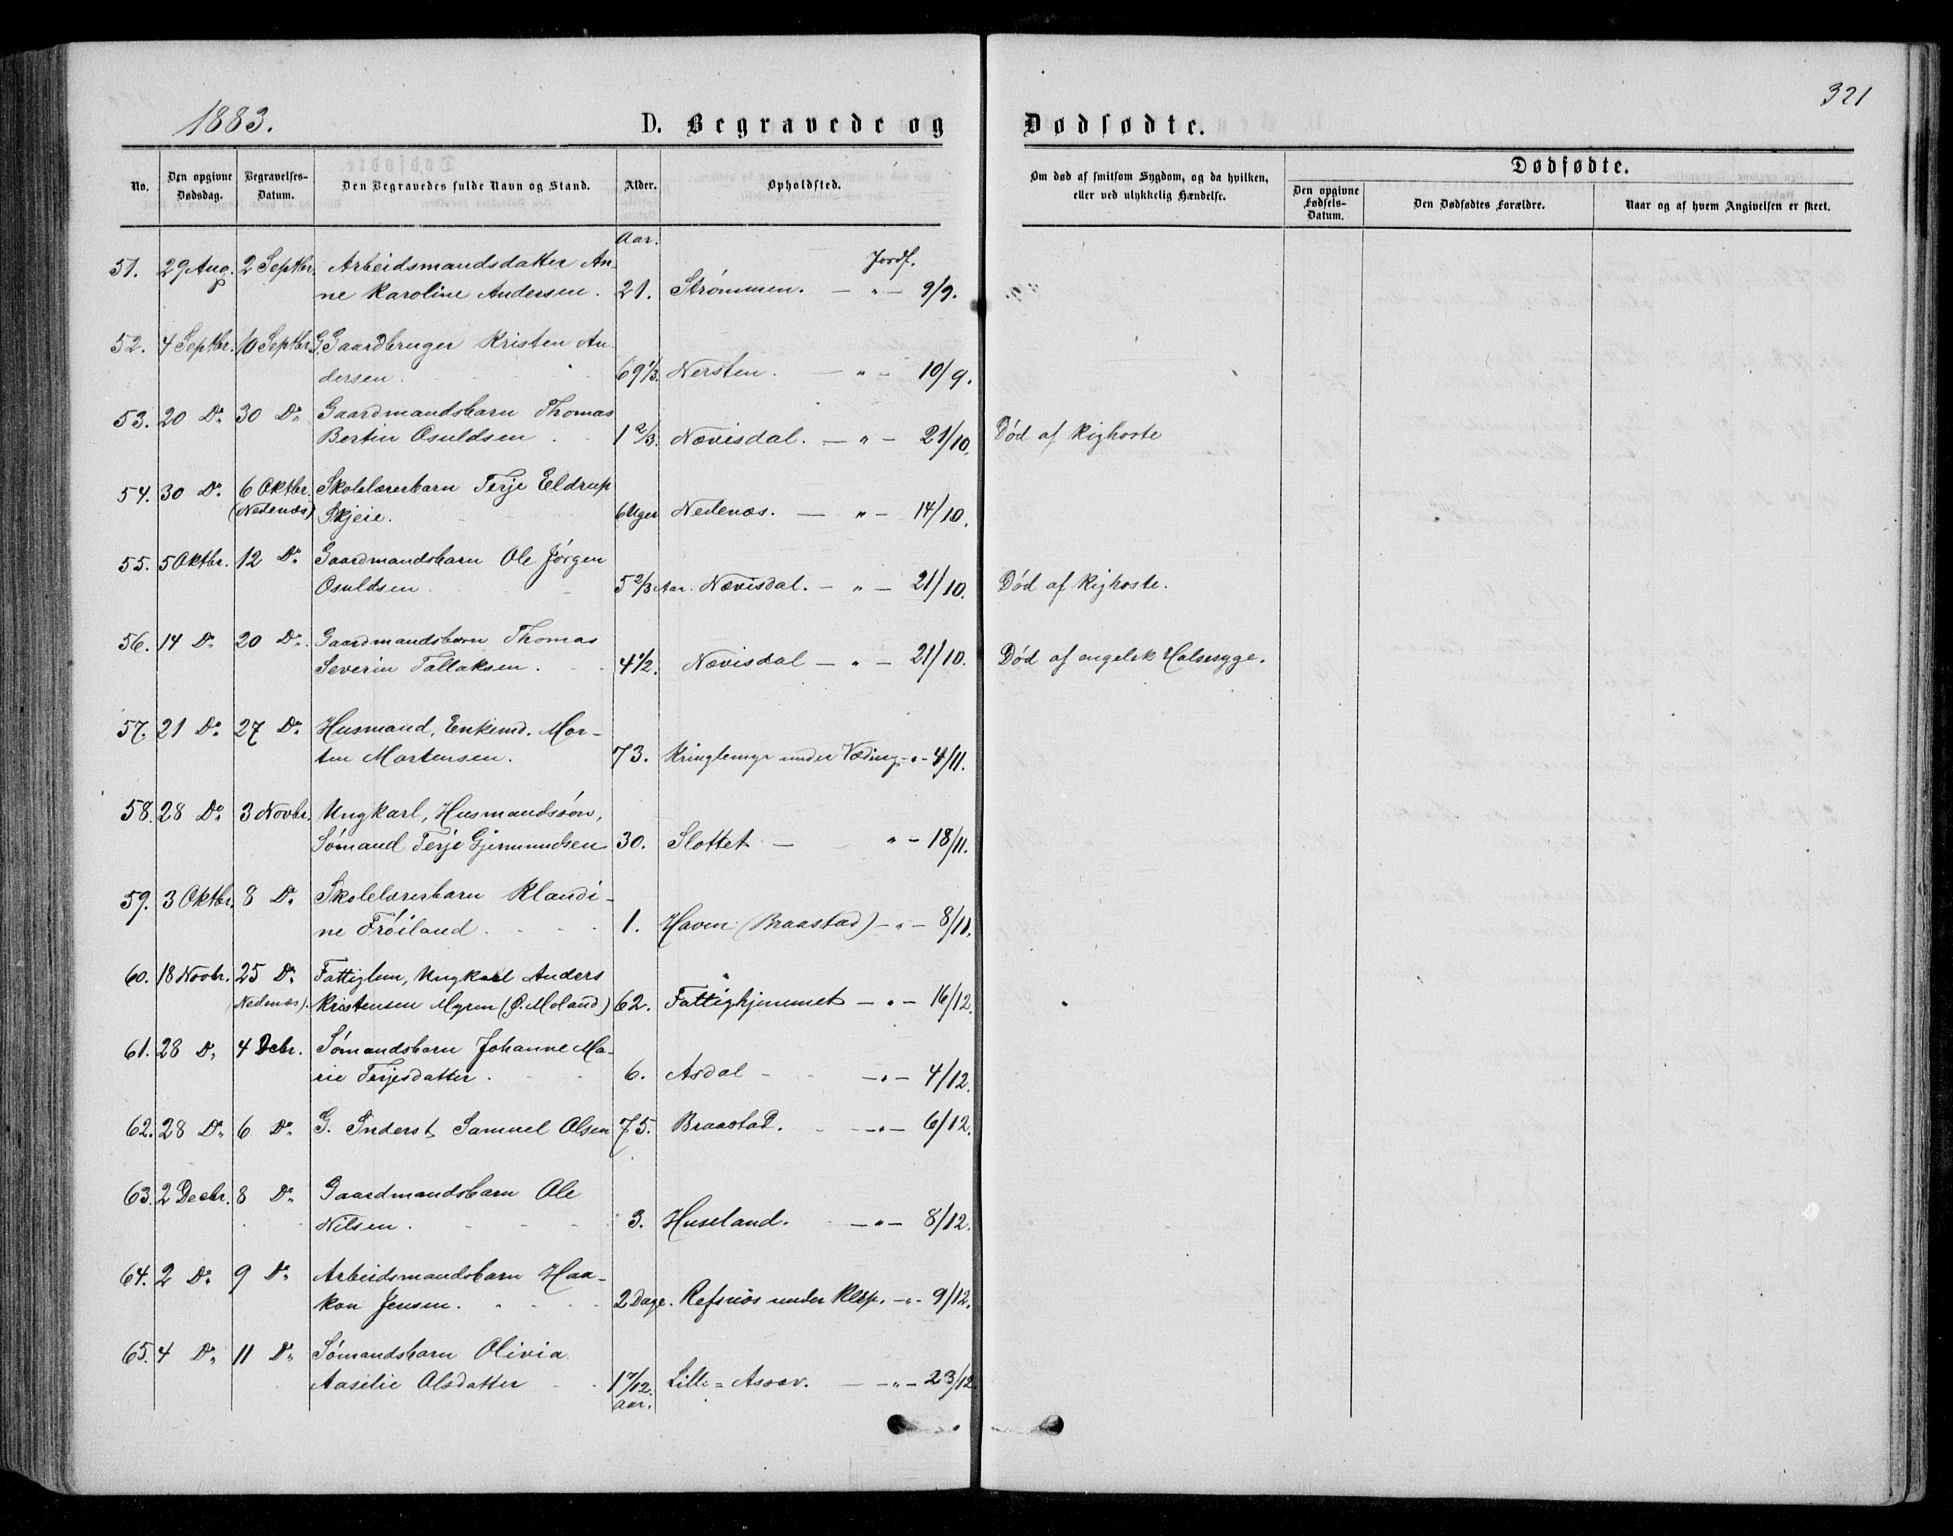 1883.
D. Begravede og
Dødfødte.
321
No.
Den opgivne Dødsdag.
Begravelses-Datum.
Den Begravedes fulde Navn og Stand.
Alder.
Opholdsted.
Om død af smitsom Sygdom, og da hvilken, eller ved ulykkelig Hændelse.
Dødfødte.
Den opgivne Fødsels-Datum.
Den Dødfødtes Forældre.
Naar og af hvem Angivelsen er skeet.
Aar. Jordf.
51. 29 Aug. 2 Septbr. Arbeidsmandsdatter An-
ne Karoline Andersen. 21. Strømmen. — " — 9/9.
52. 4 Septbr. 10 Septbr. G. Gaardbruger Kristen An-
dersen. 69 1/3. Nersten. — " — 10/9.
53. 20 Do 30 Do Gaardmandsbarn Thomas
Bertin Osuldsen. 1 2/3. Nævisdal. — " — 21/10. Død af Kighoste
54. 30 Do 6 Oktbr. Skolelærerbarn Terje Eldrup
(Nedenæs) Skjeie. 6 Uger Nedenæs. — " — 14/10.
55. 5 Oktbr. 12 Do Gaardmandsbarn Ole Jørgen
Osuldsen 5 2/3 Aar. Nævisdal. — " — 21/10. Død af Kighoste.
56. 14 Do 20 Do Gaardmandsbarn Thomas
Severin Tallaksen. 4 1/2. Nævisdal — " — 21/10. Død af engelsk Halsesyge.
57. 21 Do 27 Do Husmand, Enkemd. Mor-
ten Mortensen. 73. Kringlemyr under Væding - " - 4/11.
58. 28 Do 3 Novbr. Ungkarl, Husmandssøn,
Sømand Terje Gjermundsen 30. Slottet — " — 18/11.
59. 3 Oktbr. 8 Do Skolelærerbarn Klaudi-
ne Frøiland. 1. Haven (Braastad) — " — 8/11.
60. 18 Novbr. 25 Do Fattiglem, Ungkarl Anders
(Nedenæs). Kristensen Myren (Ø. Moland) 62. Fattighjemmet — " — 16/12.
61. 28 Do 4 Decbr. Sømandsbarn Johanne Ma-
rie Terjesdatter. 6. Asdal — " — 4/12.
62. 28 Do 6 Do G. Inderst Samuel Olsen 75. Braastad. — " — 6/12.
63. 2 Decbr. 8 Do Gaardmandsbarn Ole
Nilsen. 3. Huseland. — " — 8/12.
64. 2 Do 9 Do Arbeidsmandsbarn Haa-
kon Jensen. 2 Dage. Refsnæs under — " — 9/12.
65. 4 Do 11 Do Sømandsbarn Olivia
Aaselie Olsdatter 1 7/12. Lille = Assev. — " — 23/12.
Aar.